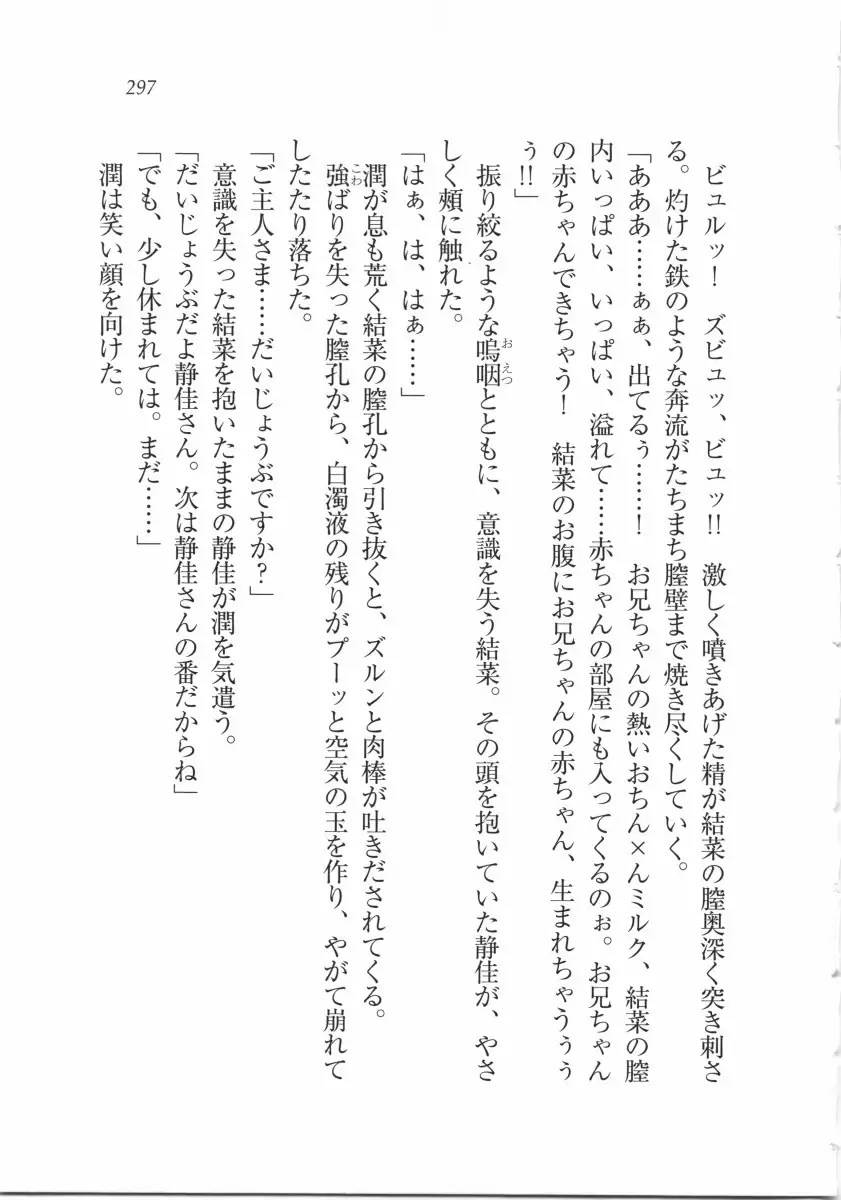 297
　ビュルッ！　ズビュッ、ビュッ!!　激しく噴きあげた精が結菜の膣奥深く突き刺さ
る。灼けた鉄のような奔流がたちまち膣壁まで焼き尽くしていく。
「あああ……ぁぁ、出てるぅ……！　お兄ちゃんの熱いおちん×んミルク、結菜の膣
内いっぱい、いっぱい、溢れて……赤ちゃんの部屋にも入ってくるのぉ。お兄ちゃん
の赤ちゃんできちゃう！　結菜のお腹にお兄ちゃんの赤ちゃん、生まれちゃうぅぅ
ぅ!!」
　振り絞るような嗚咽とともに、意識を失う結菜。その頭を抱いていた静佳が、やさ
しく頰に触れた。
「はぁ、は、はぁ……」
　潤が息も荒く結菜の膣孔から引き抜くと、ズルンと肉棒が吐きだされてくる。
　強ばりを失った膣孔から、白濁液の残りがプーッと空気の玉を作り、やがて崩れて
したたり落ちた。
「ご主人さま……だいじょうぶですか？」
　意識を失った結菜を抱いたままの静佳が潤を気遣う。
「だいじょうぶだよ静佳さん。次は静佳さんの番だからね」
「でも、少し休まれては。まだ……」
　潤は笑い顔を向けた。